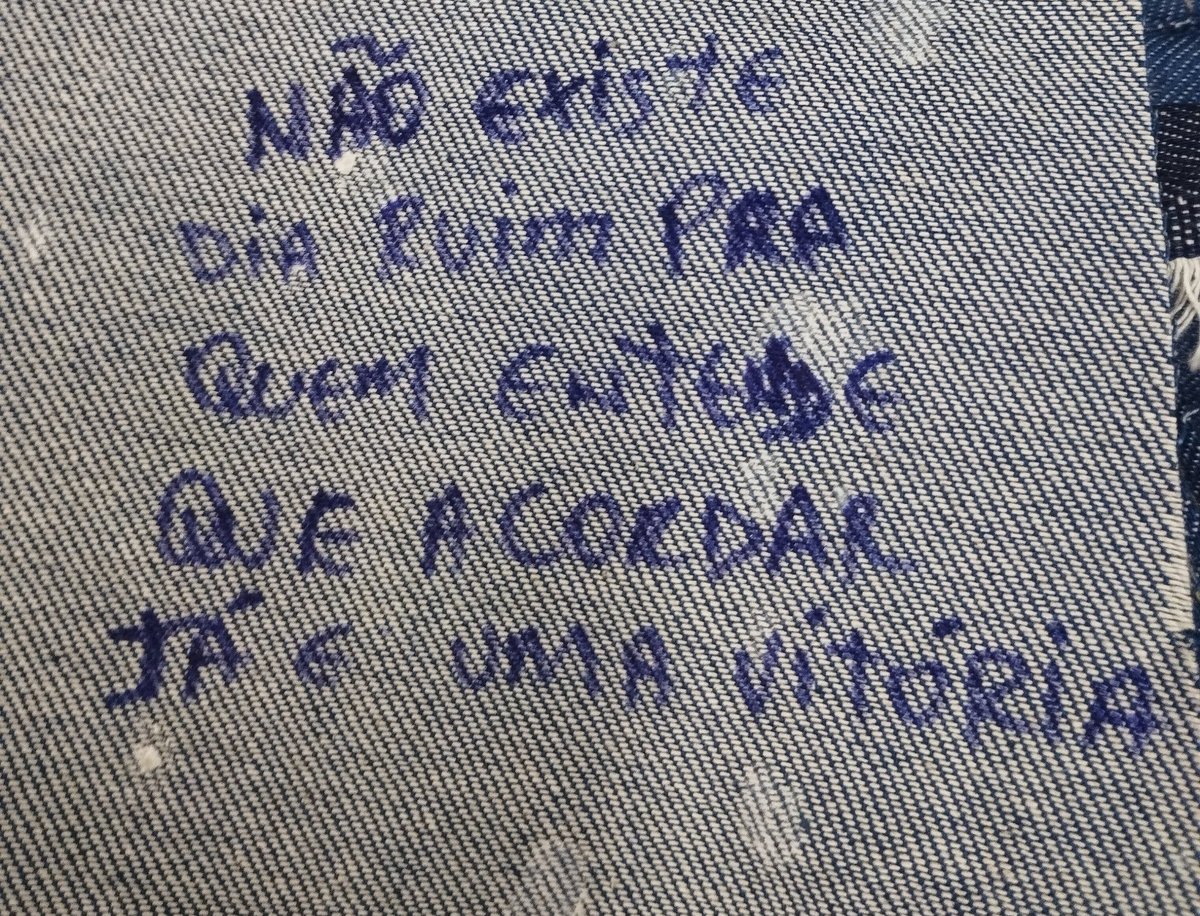 NÃO EXiSTE
DiA RUim PRA
QUEM ENTENDE
QUE ACORDAR
JÁ E UMA ViTÓRiA